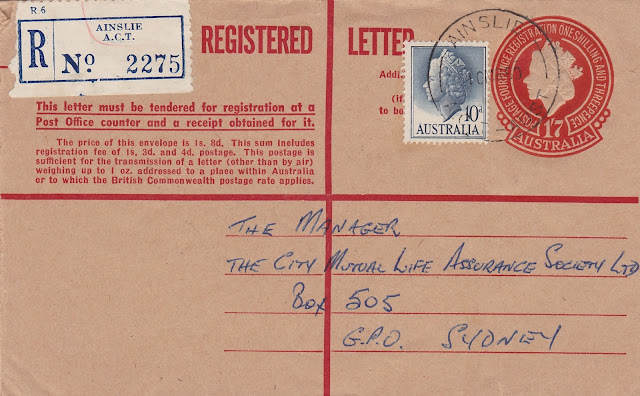 R 6
AINSLIE
A.C.T.
R No 2275
REGISTERED LETTER
This letter must be tendered for registration at a
Post Office counter and a receipt obtained for it.
The price of this envelope is 1s. 8d. This sum includes
registration fee of 1s, 3d. and 4d. postage. This postage is
sufficient for the transmission of a letter (other than by air)
weighing up to 1 oz. addressed to a place within Australia
or to which the British Commonwealth postage rate applies.
Addi
(if
to be
10d
AUSTRALIA
AINSLIE
POSTAGE FOURPENCE REGISTRATION ONE SHILLING AND THREEPENCE
1'7
AUSTRALIA
THE MANAGER
THE CITY MUTUAL LIFE ASSURANCE SOCIETY LTD
BOX 505
G.P.O. SYDNEY